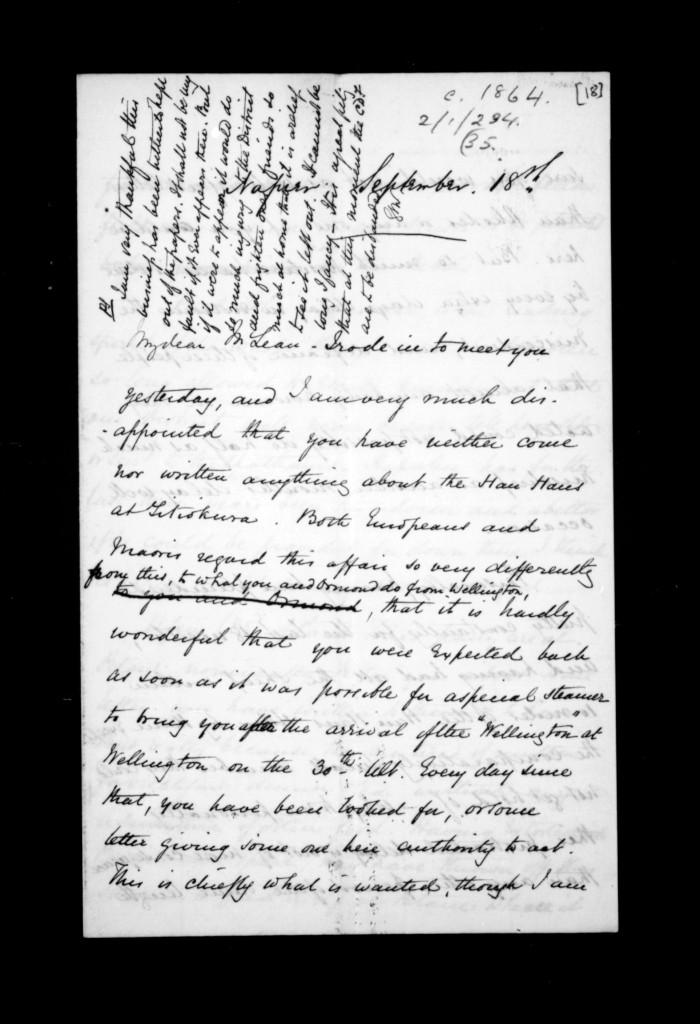 c. 1864.
[18]
2/1/294.
(35.
Napier September. 18th
PS
I am very thankful this
business has been hitherto kept
out of the papers. It shall not be my
fault if it ever appears there. But
if it were to appear it would do
so much injury to the District
and frighten our friends so
much at home that it is a relief
to see it left out. I cannot be
long I fancy - It is a great pity
that at this moment the CDF
are to be disbanded
My dear McLean - I rode in to meet you
yesterday, and I am very much dis-
-appointed that you have neither come
nor written anything about the Hau Haus
at Titiokura. Both Europeans and
Maoris regard this affair so very differently
from this, to what you and Ormond do from Wellington,
to you and Ormond, that it is hardly
wonderful that you were expected back
as soon as it was possible for a special steamer
to bring you after the arrival of the "Wellington" at
Wellington on the 30th Ult. Every day since
that, you have been looked for, or some
letter giving some one here authority to act.
This is chiefly what is wanted, though I am